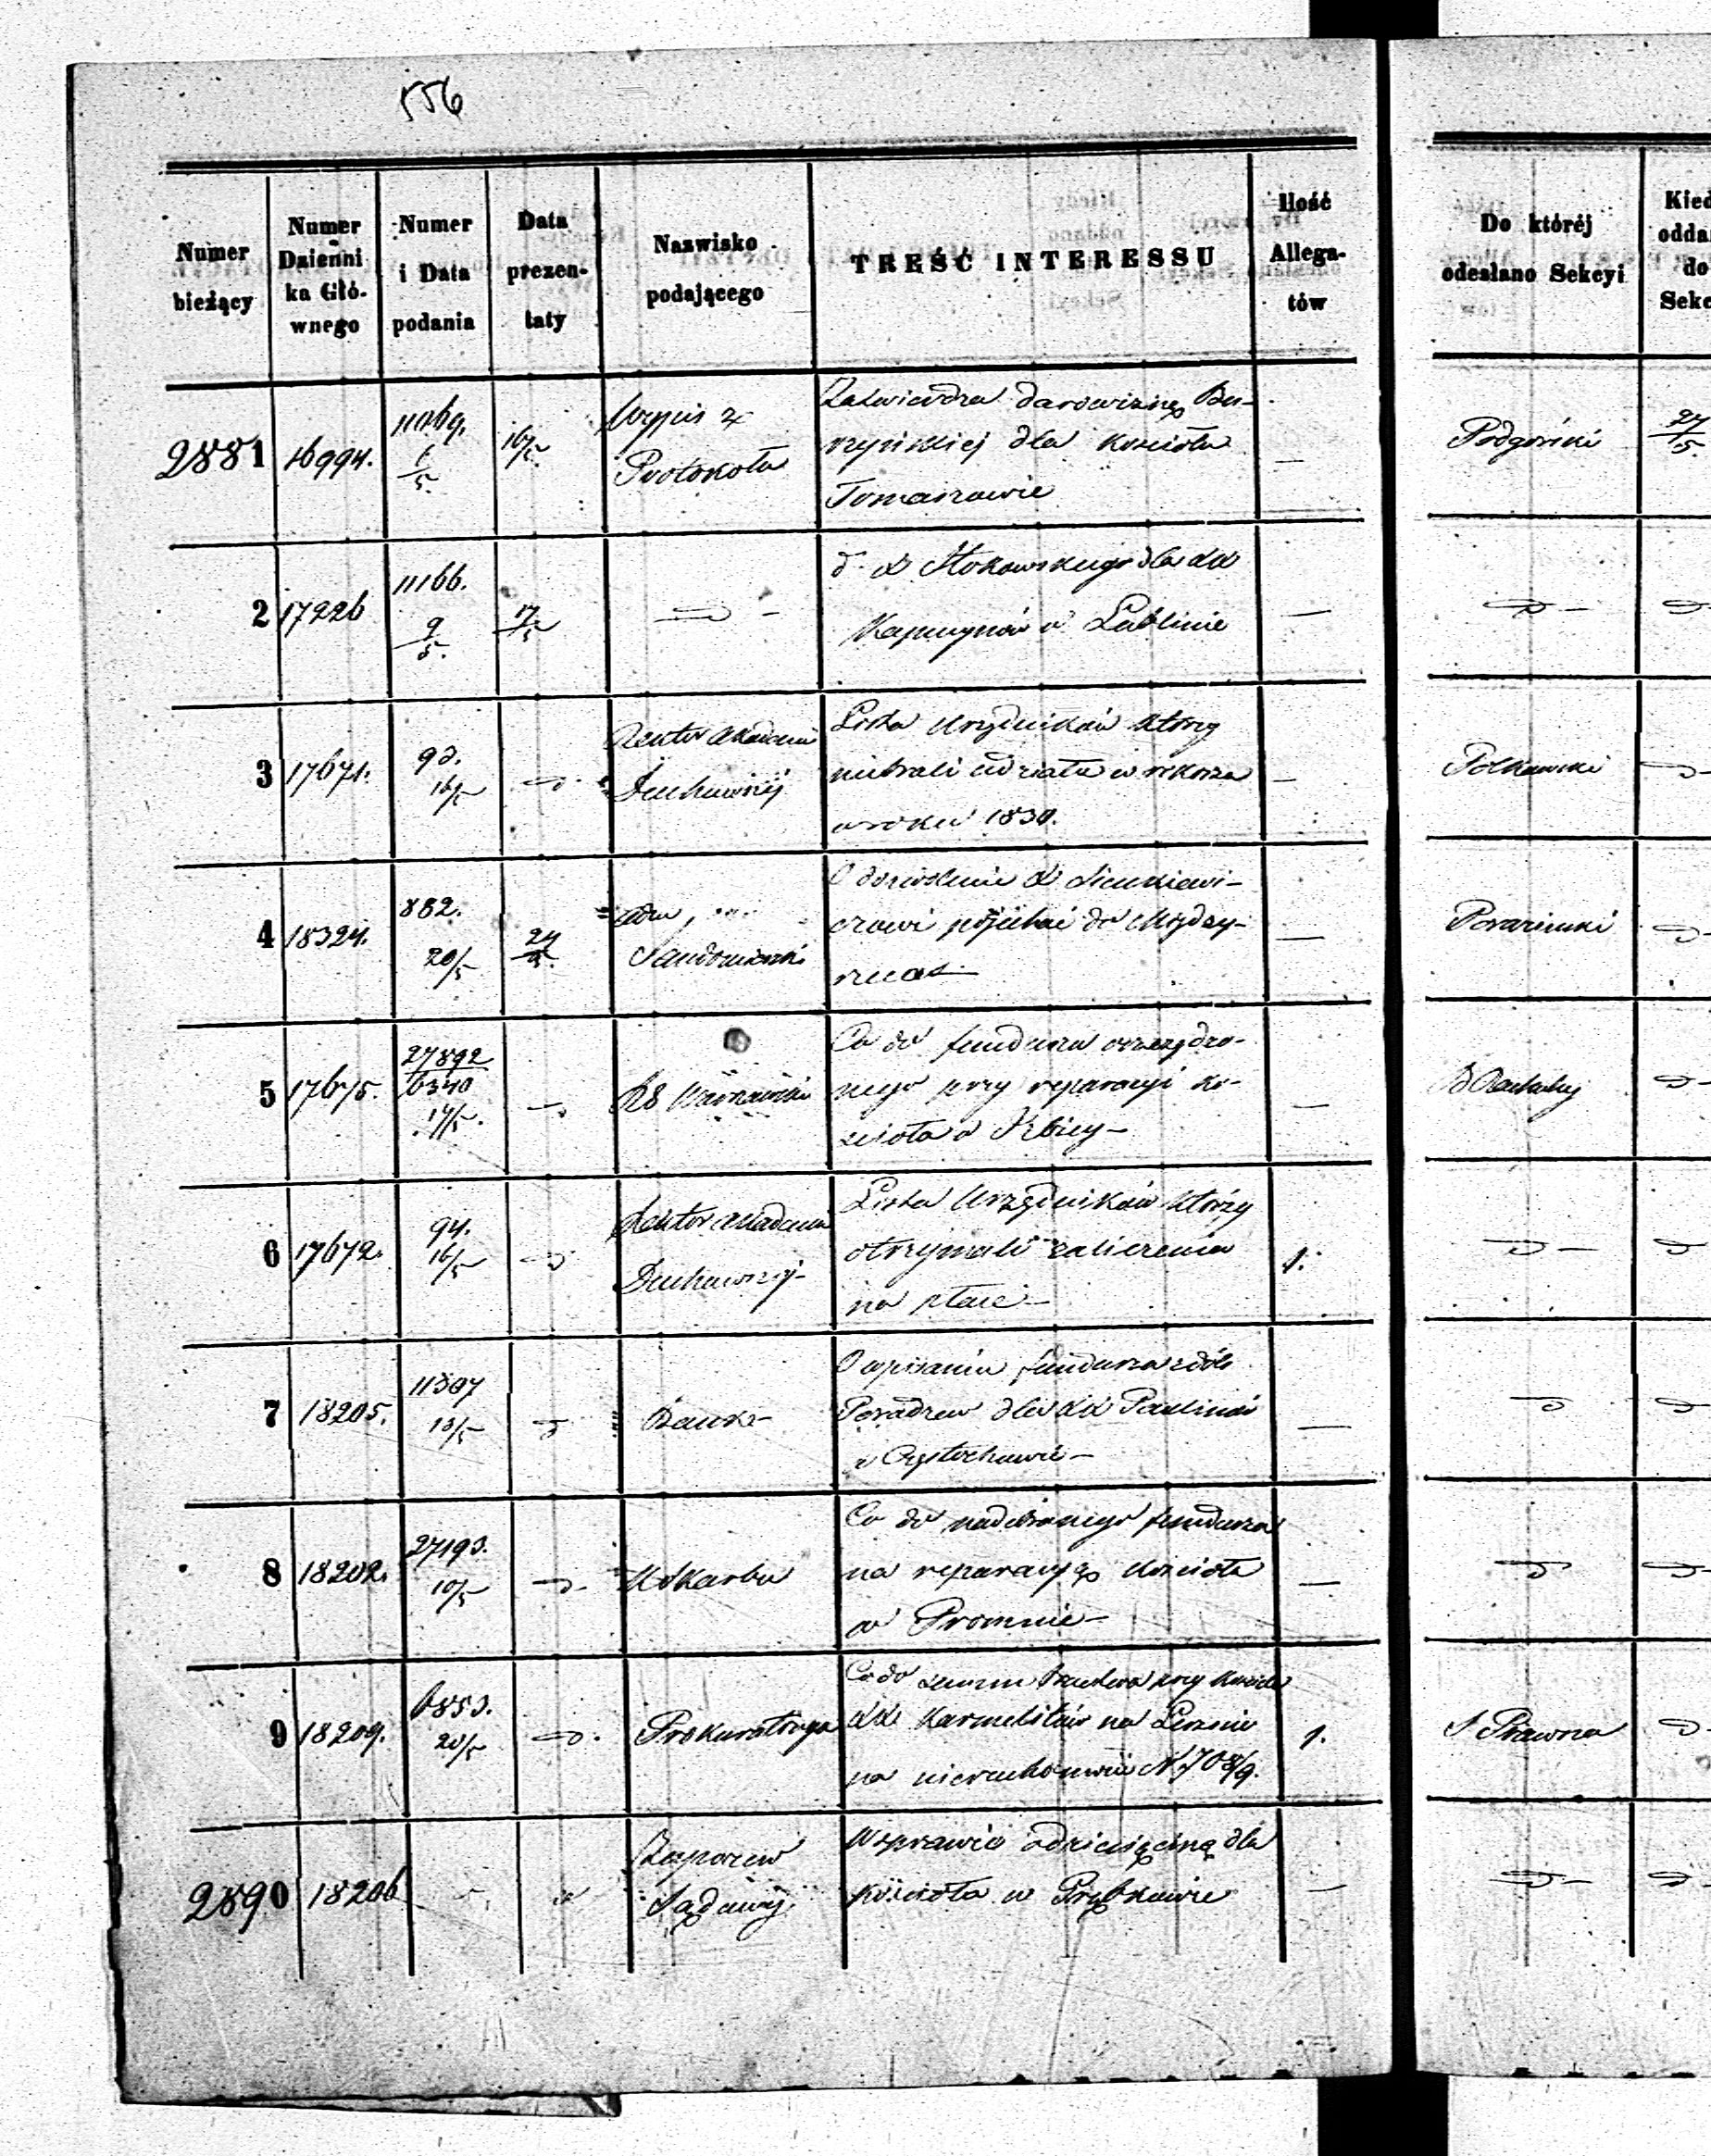 556
Numer bieżący
Numer Dzienni ka Głó- wnego
Numer i Data podania
Data prezen- taty
Nazwisko podającego
TREŚĆ INTERESSU
Ilość Allega- tów
Do któréj odesłano Sekcyi
Kied
oddan
do
Sekc
2881 16994. 11069. 6/5. 16/5. Wypis z Protokołu
Zatwierdza darowiznę Bu-
rzyńskiej dla Kościoła
Tomaszowie
— Podgórski 27/5.
2 17226 11166. 9/5. 17/5
d. X Stokowskiego dla XX
Kapucynów w Lublinie
—
3 17671. 93. 16/5 Rektor Akademii Duchownéj
Lista Urzędników którzy
niebrali udziału w
w roku 1830.
— Polkowski
4 18324. 882. 20/5 24/5. Adm. Sandomierski
O dozwolenie X Sienkiewi-
czowi pojechać do Między-
rzecza
—
5 17675. 27892 6340 14/5. RG Warszawski
Co do funduszu oszczędzo-
nego przy reparacyi ko-
ścioła w Kłbiey—
—
6 17672. 94. 16/5 Rektor Akademii Duchownéj—
Lista Urzędników którzy
otrzymali zaliczenia
na płacę—
1.
7 18205. 11307 13/5 Bank—
O wpisaniu funduszu z dób
Poradzew dla XX Paulinów
w Częstochowie—
—
8 18202. 27193. 10/5 K Skarbu
Co do nadebranego funduszu
na reparacyę Kościoła
w Promnie—
—
9 18209. 6853. 20/5 Prokuratorya
Co do przy Kościele
XX Karmelitów na Lesznie
na nieruchomości N. 708/9.
1. S Prawna
2890 18206 Sądowy
W sprawie o dziesięcinę dla
Kościoła w Prębkowie
—